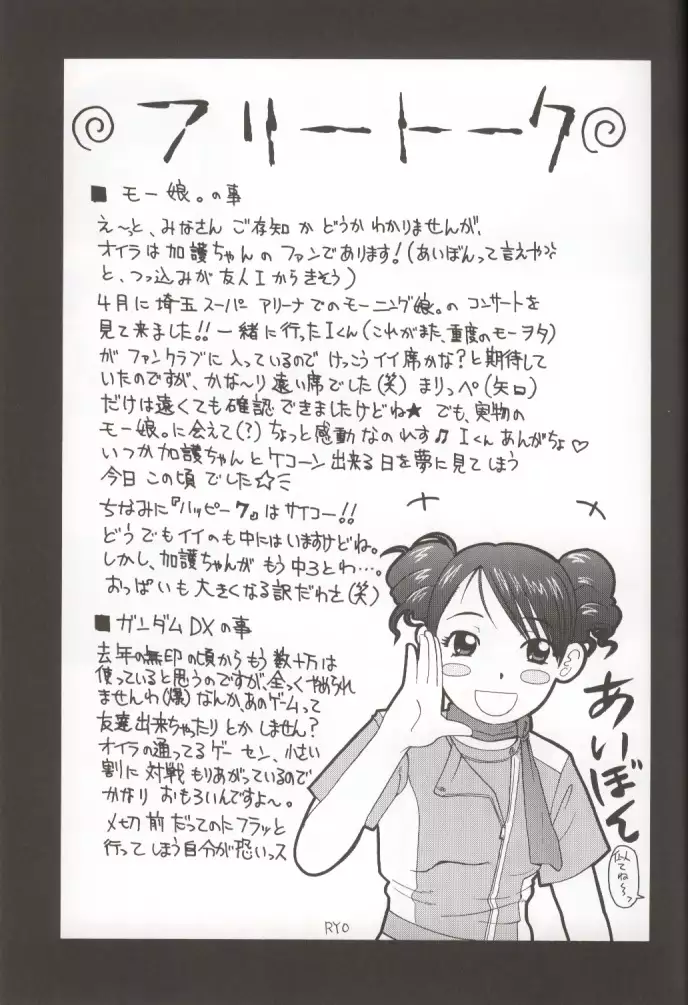 フリートーク
■ モー娘。の事
え～っと、みなさん ご存知 か どうか わかりませんが、
オイラは 加護ちゃん の ファンであります！(あいぼんって言えや
と、つっ込みが 友人I からきそう)
4月に 埼玉 スーパー アリーナ でのモーニング娘。の コンサートを
見て来ました!! 一緒に行ったIくん(これがまた、重度のモーヲタ)
が ファンクラブに 入っているので けっこう イイ席かな？と期待して
いたのですが、かな～り 遠い席でした(笑) まりっぺ(矢口)
だけは遠くても確認 できましたけどね★ でも、実物の
モー娘。に会えて(？)ちょっと感動 なのれす♫ Iくん あんがちょ♡
いつか 加護ちゃんと ケコーン 出来る日を夢に見て しまう
今日 この頃 でした☆ミ
ちなみに『ハッピー7』はサイコー!!
どうでもイイのも中にはいますけどね。
しかし、加護ちゃんが もう中3とわ…。
■ ガンダム DX の事
去年の無印の頃からもう 数十万は
使っていると思うのですが、全っくやめられ
ませんわ(爆) なんか、あのゲームって
友達出来ちゃったり とか しません？
オイラの通ってる ゲーセン、小さい
割に 対戦 もりあがっているので
かなり おもろいんですよ～。
〆切 前 だってのにフラッと
行って しまう自分が恐いっス
あいぼん
似てね～っ
RYO